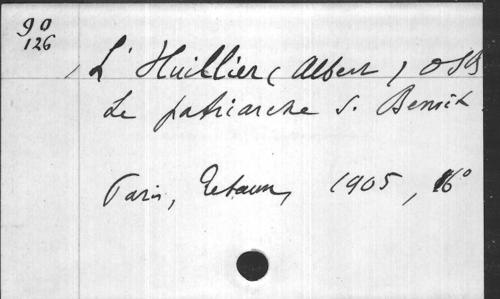 90
126
L'Huillier (Albert) OSB
Le patriarche S. Benoit
Paris, Retaux, 1905, 16°